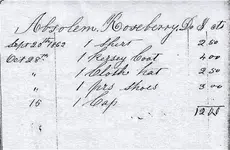 Absolem. Roseberry. Dr $ cts
Sept 20th 1862 1 Shirt 2 50
Oct 28th 1 Kersey Coat 4 00
" 1 Cloth hat 2 50
" 1 prs Shoes 3 00
15 1 Cap